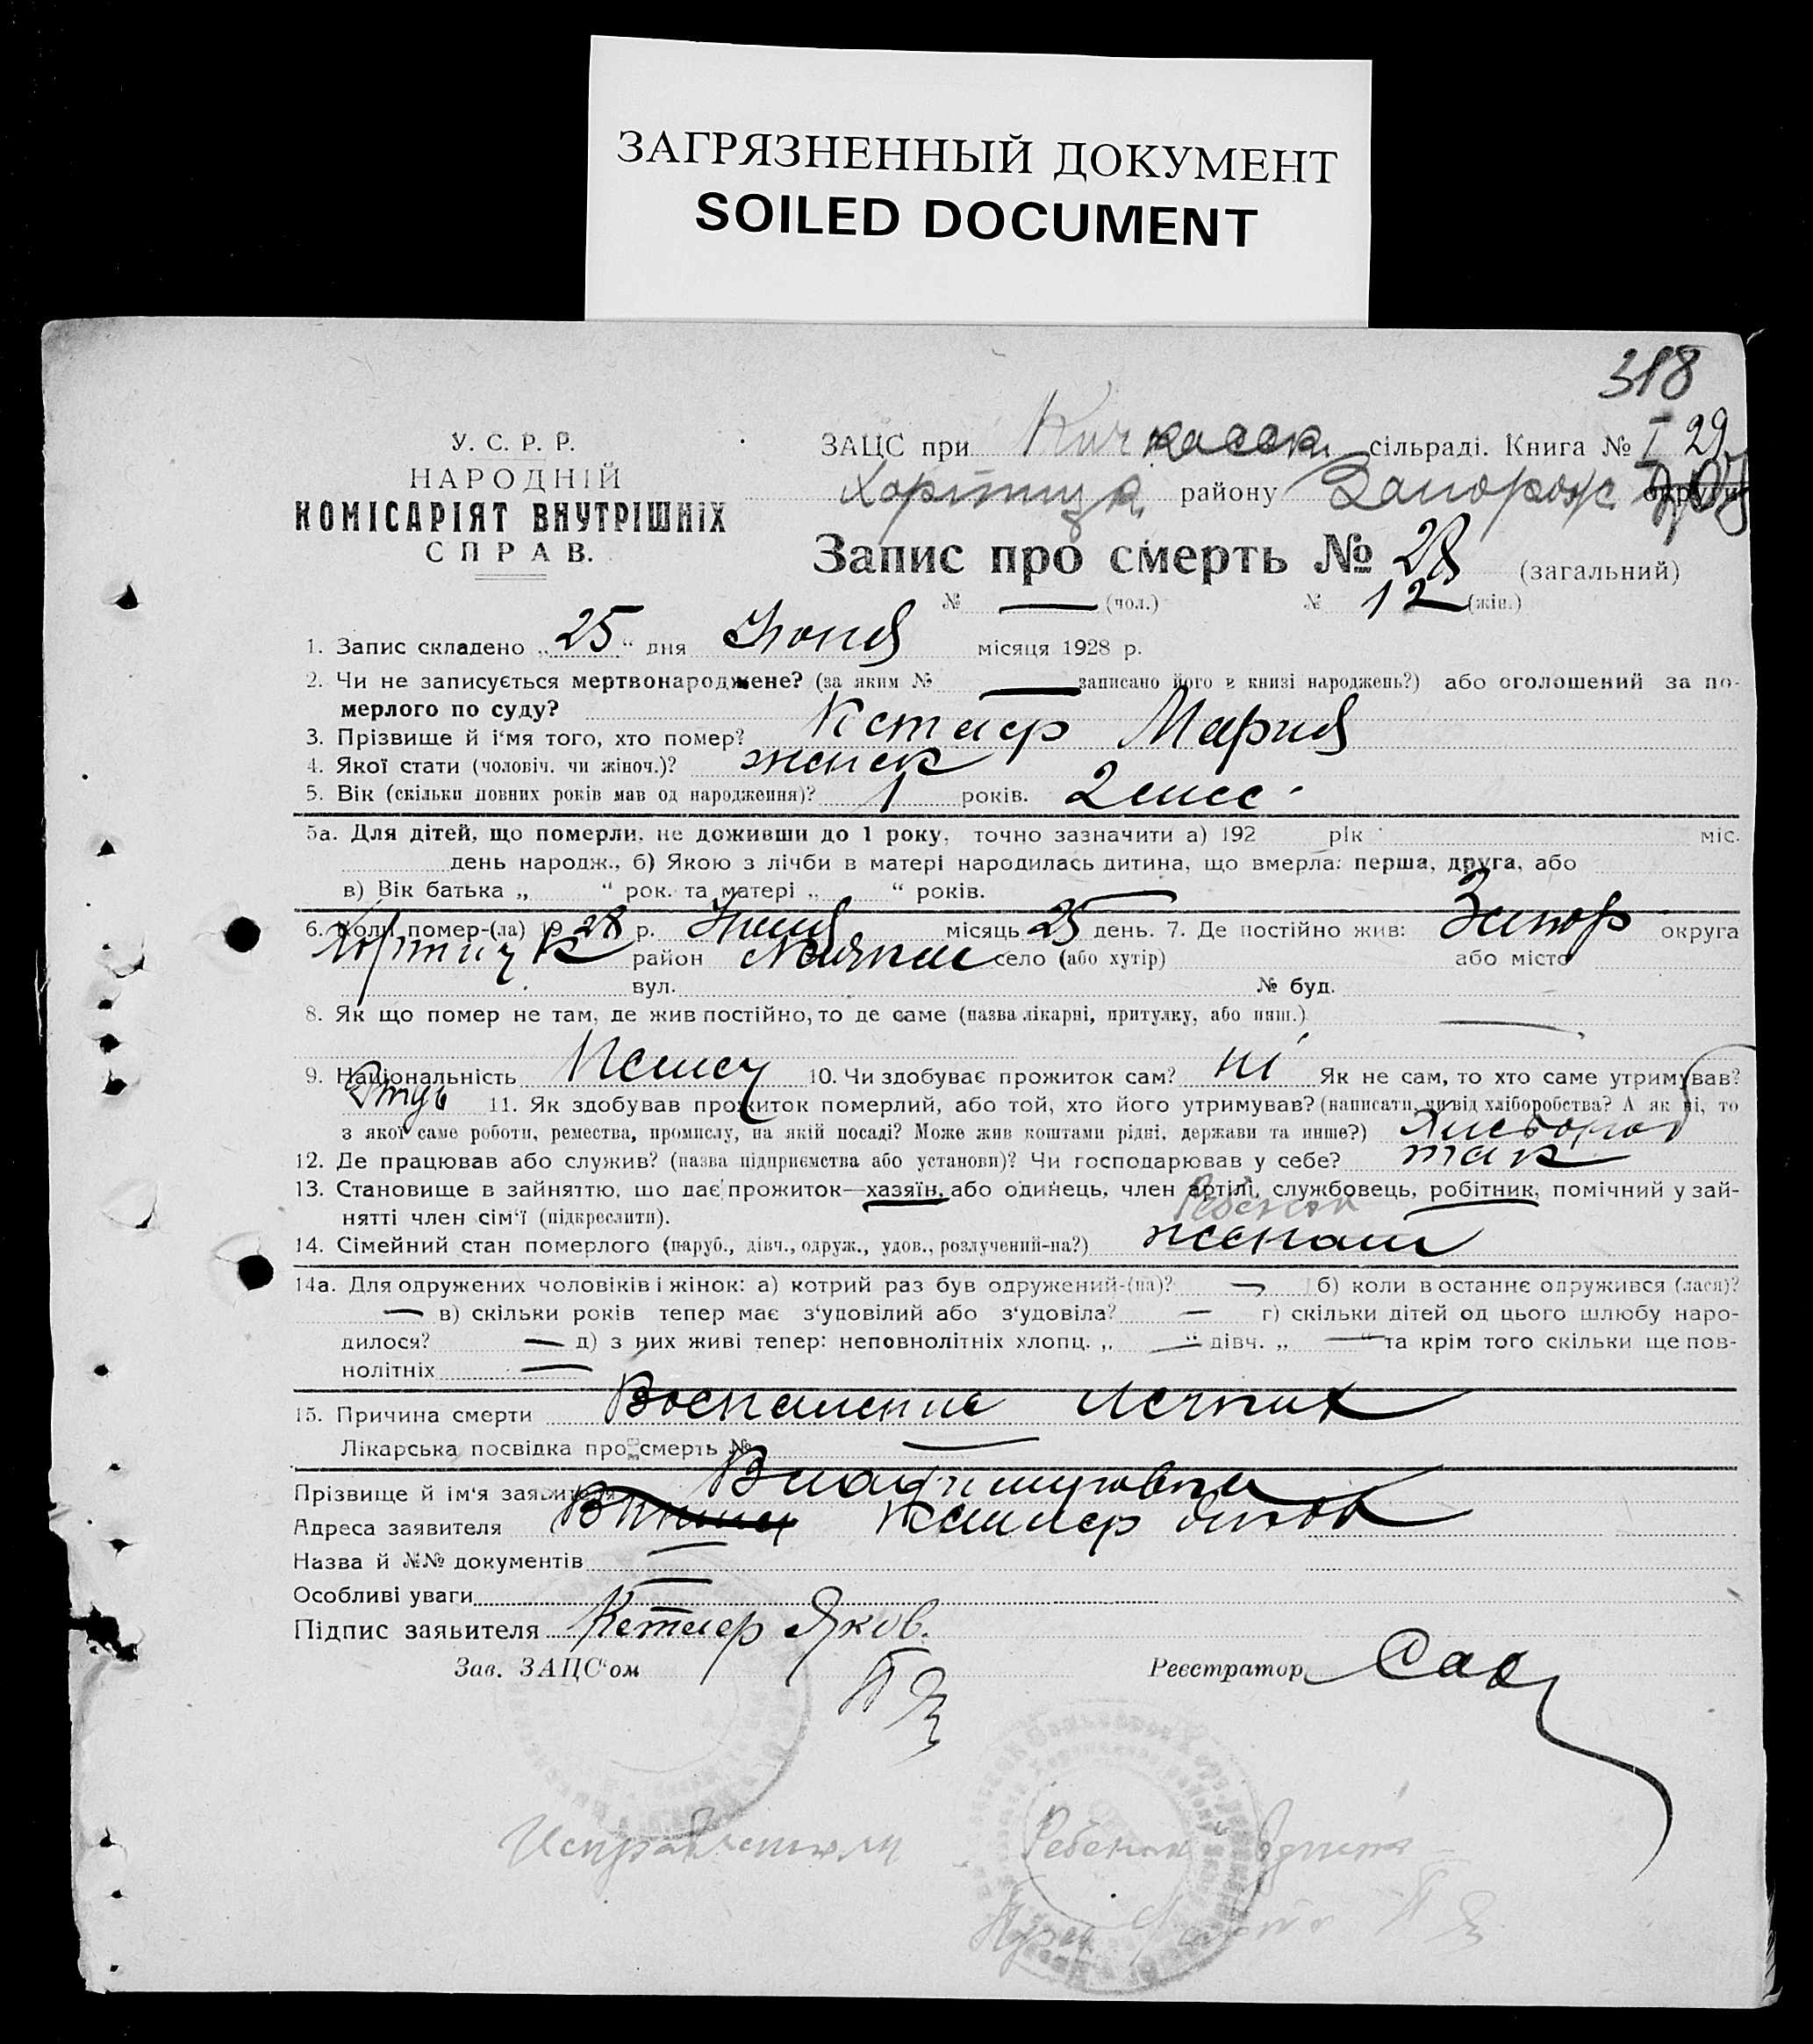 ЗАГРЯЗНЕННЫЙ ДОКУМЕНТ
SOILED DOCUMENT
318
У. С. Р. Р.
НАРОДНІЙ
КОМІСАРІЯТ ВНУТРІШНІХ
СПРАВ.
ЗАЦС при Кичкасск. сільраді. Книга № I 29
Хортицк. району Запорож округи
Запис про смерть № 28 (загальний)
№ — (чол.) № 12 (жін.)
1. Запис складено „25“ дня Июня місяця 1928 р.
2. Чи не записується мертвонароджене? (за яким № — записано його в книзі народжень?) або оголошений за по-
мерлого по суду?
3. Прізвище й і'мя того, хто помер? Кетлер Мария
4. Якої стати (чоловіч. чи жіноч.)? женск
5. Вік (скільки повних років мав од народження)? 1 років. 2 мес.
5а. Для дітей, що померли, не доживши до 1 року, точно зазначити а) 192 рік міс.
день народж., б) Якою з лічби в матері народилась дитина, що вмерла: перша, друга, або
в) Вік батька „ “ рок. та матері „ “ років.
6. Коли помер-(ла) 1928 р. Июня місяць 25 день. 7. Де постійно жив: Запор округа
Хортицк район село (або хутір) або місто
вул. № буд.
8. Як що помер не там, де жив постійно, то де саме (назва лікарні, притулку, або инш.) —
9. Національність Немец 10. Чи здобуває прожиток сам? ні Як не сам, то хто саме утримував?
Отць 11. Як здобував прожиток померлий, або той, хто його утримував? (написати, чи від хліборобства? А як ні, то
з якої саме роботи, ремества, промислу, на якій посаді? Може жив коштами рідні, держави та инше?)
12. Де працював або служив? (назва підприємства або установи)? Чи господарював у себе? так
13. Становище в зайняттю, шо дає прожиток—хазяїн, або одинець, член артілі, службовець, робітник, помічний у зай-
нятті член сім'ї (підкреслити). Ребенок
14. Сімейний стан померлого (паруб., дівч., одруж., удов., розлучений-на?) женат
14а. Для одружених чоловіків і жінок: а) котрий раз був одружений-(на)? — б) коли в останнє одружився (лася)?
— в) скільки років тепер має з'удовілий або з'удовіла? — г) скільки дітей од цього шлюбу наро-
дилося? — д) з них живі тепер: неповнолітніх хлопц. „—“ дівч. „—“ та крім того скільки ще пов-
нолітніх —
15. Причина смерти Воспаление легких
Лікарська посвідка про смерть № —
Прізвище й ім'я заявителя Владимировка
Адреса заявителя Кетлер Яков
Назва й №№ документів —
Особливі уваги —
Підпис заявителя Кетлер Яков.
Зав. ЗАЦС'ом Реєстратор
Ребенок